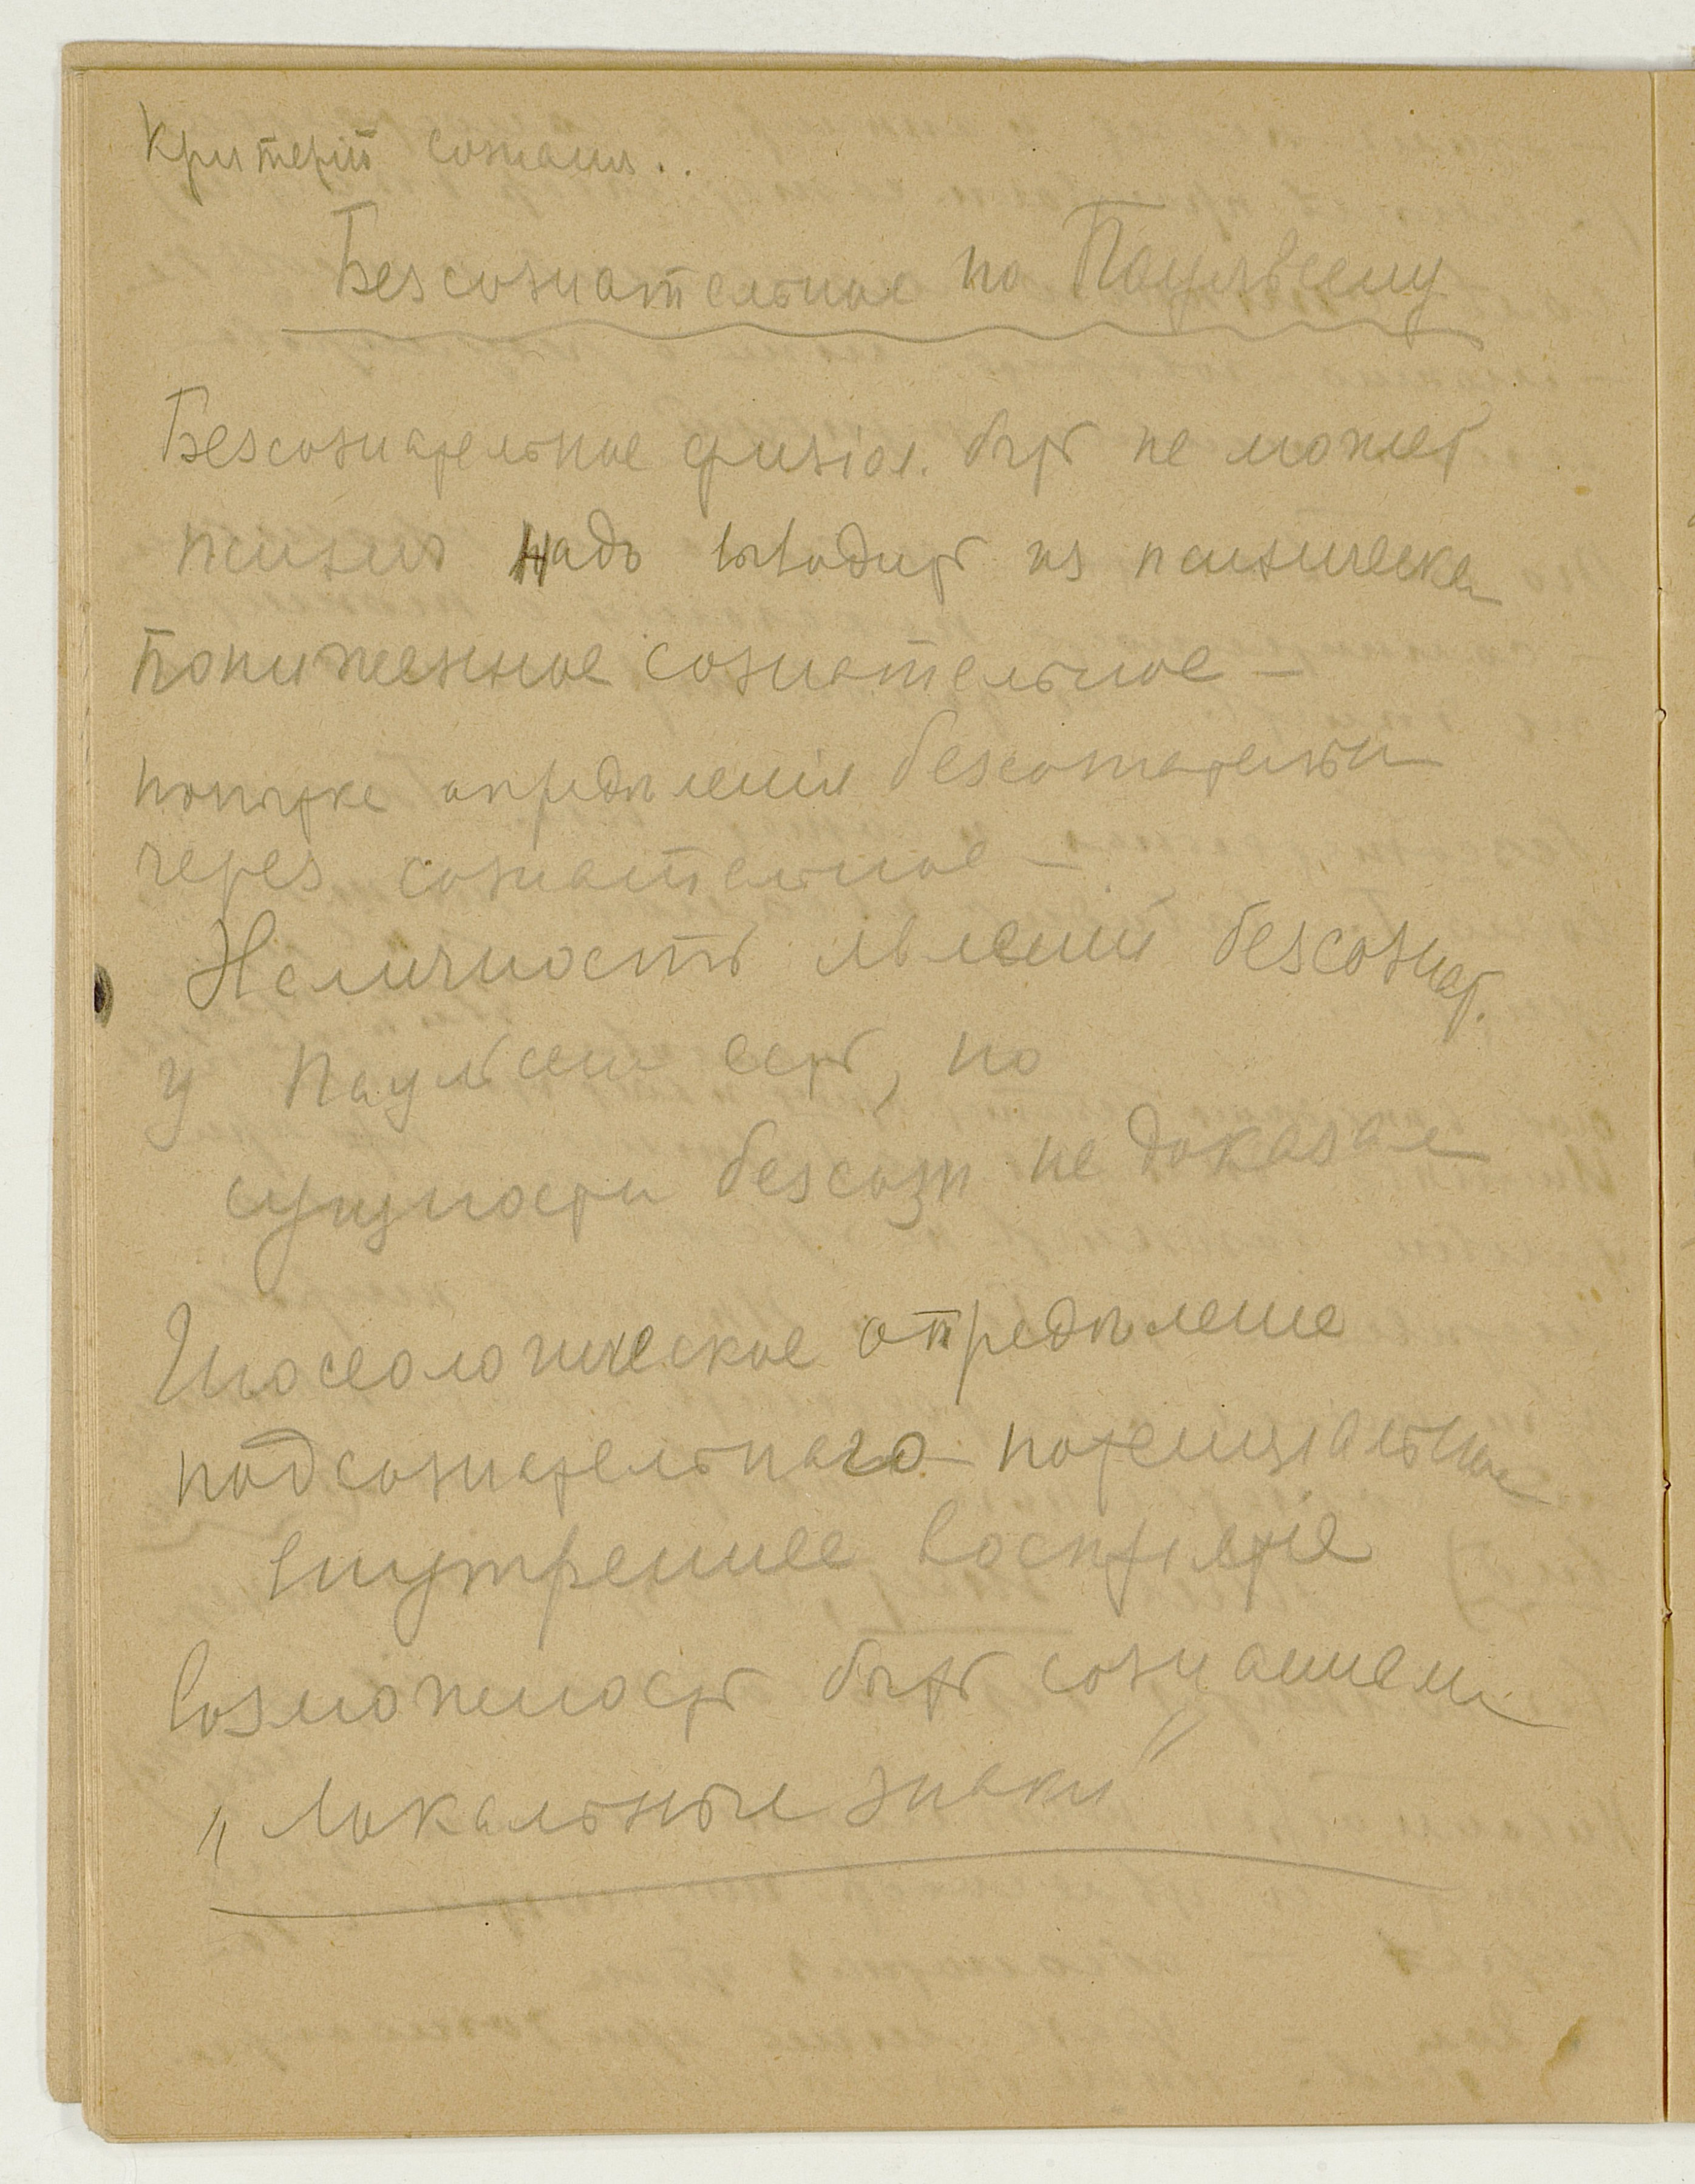 Критерій сознанія..
Безсознательное по Паульсену
Безсознательное физіол. быть не можетъ
психич надо выводить из психическа
Пониженное сознательное —
попытка опредѣленія безсознательн
через сознательное —
Наличность явленій безсознат.
у Паульсена есть, но
сущности безсозн не доказал
Гносеологическое опредѣленіе
подсознательнаго потенціальное
внутреннее воспріятіе
возможность быть сознанием
„локальные знаки"